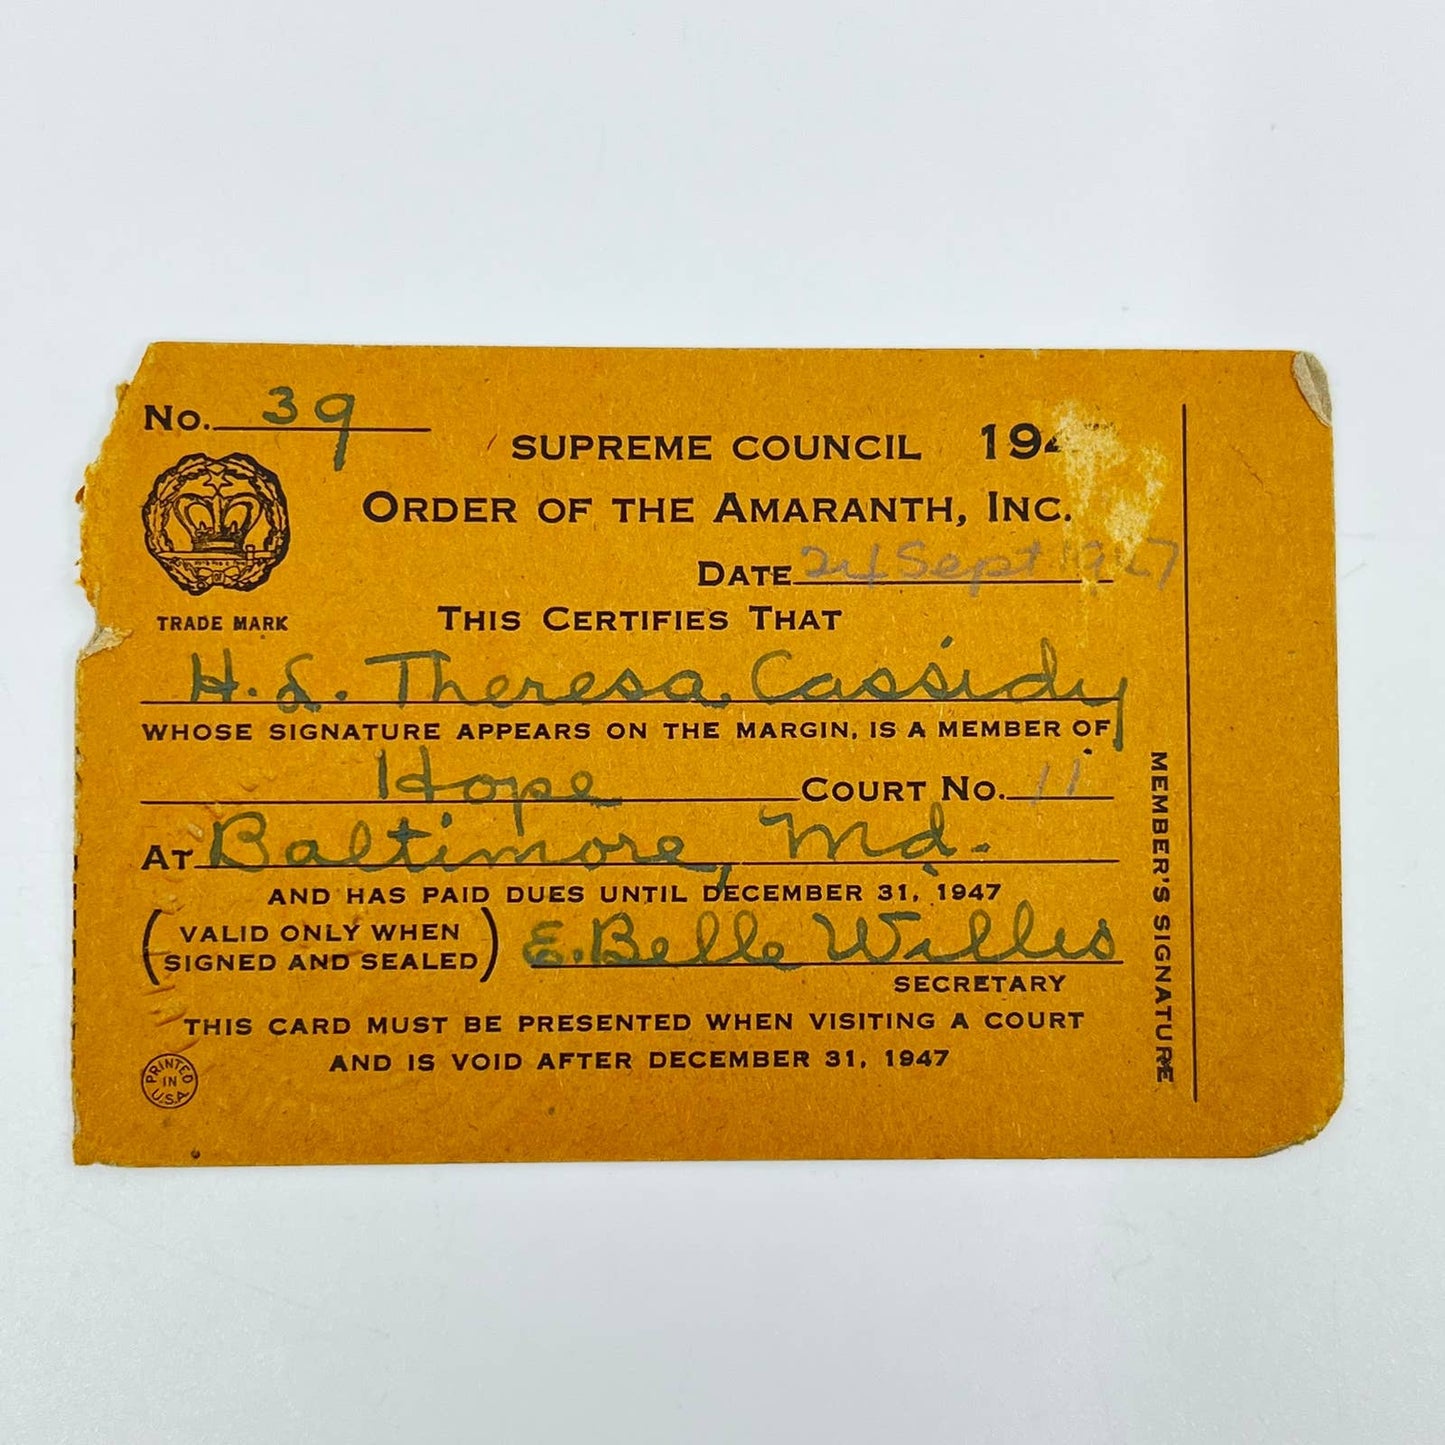 No. 39
SUPREME COUNCIL 194
ORDER OF THE AMARANTH, INC.
DATE 24 Sept 1947
TRADE MARK
THIS CERTIFIES THAT
H. L. Theresa Cassidy
WHOSE SIGNATURE APPEARS ON THE MARGIN, IS A MEMBER OF
Hope COURT NO. 11
AT Baltimore, Md.
AND HAS PAID DUES UNTIL DECEMBER 31, 1947
(VALID ONLY WHEN
SIGNED AND SEALED) E. Belle Willis
SECRETARY
THIS CARD MUST BE PRESENTED WHEN VISITING A COURT
AND IS VOID AFTER DECEMBER 31, 1947
PRINTED
IN
U.S.A.
MEMBER'S SIGNATURE